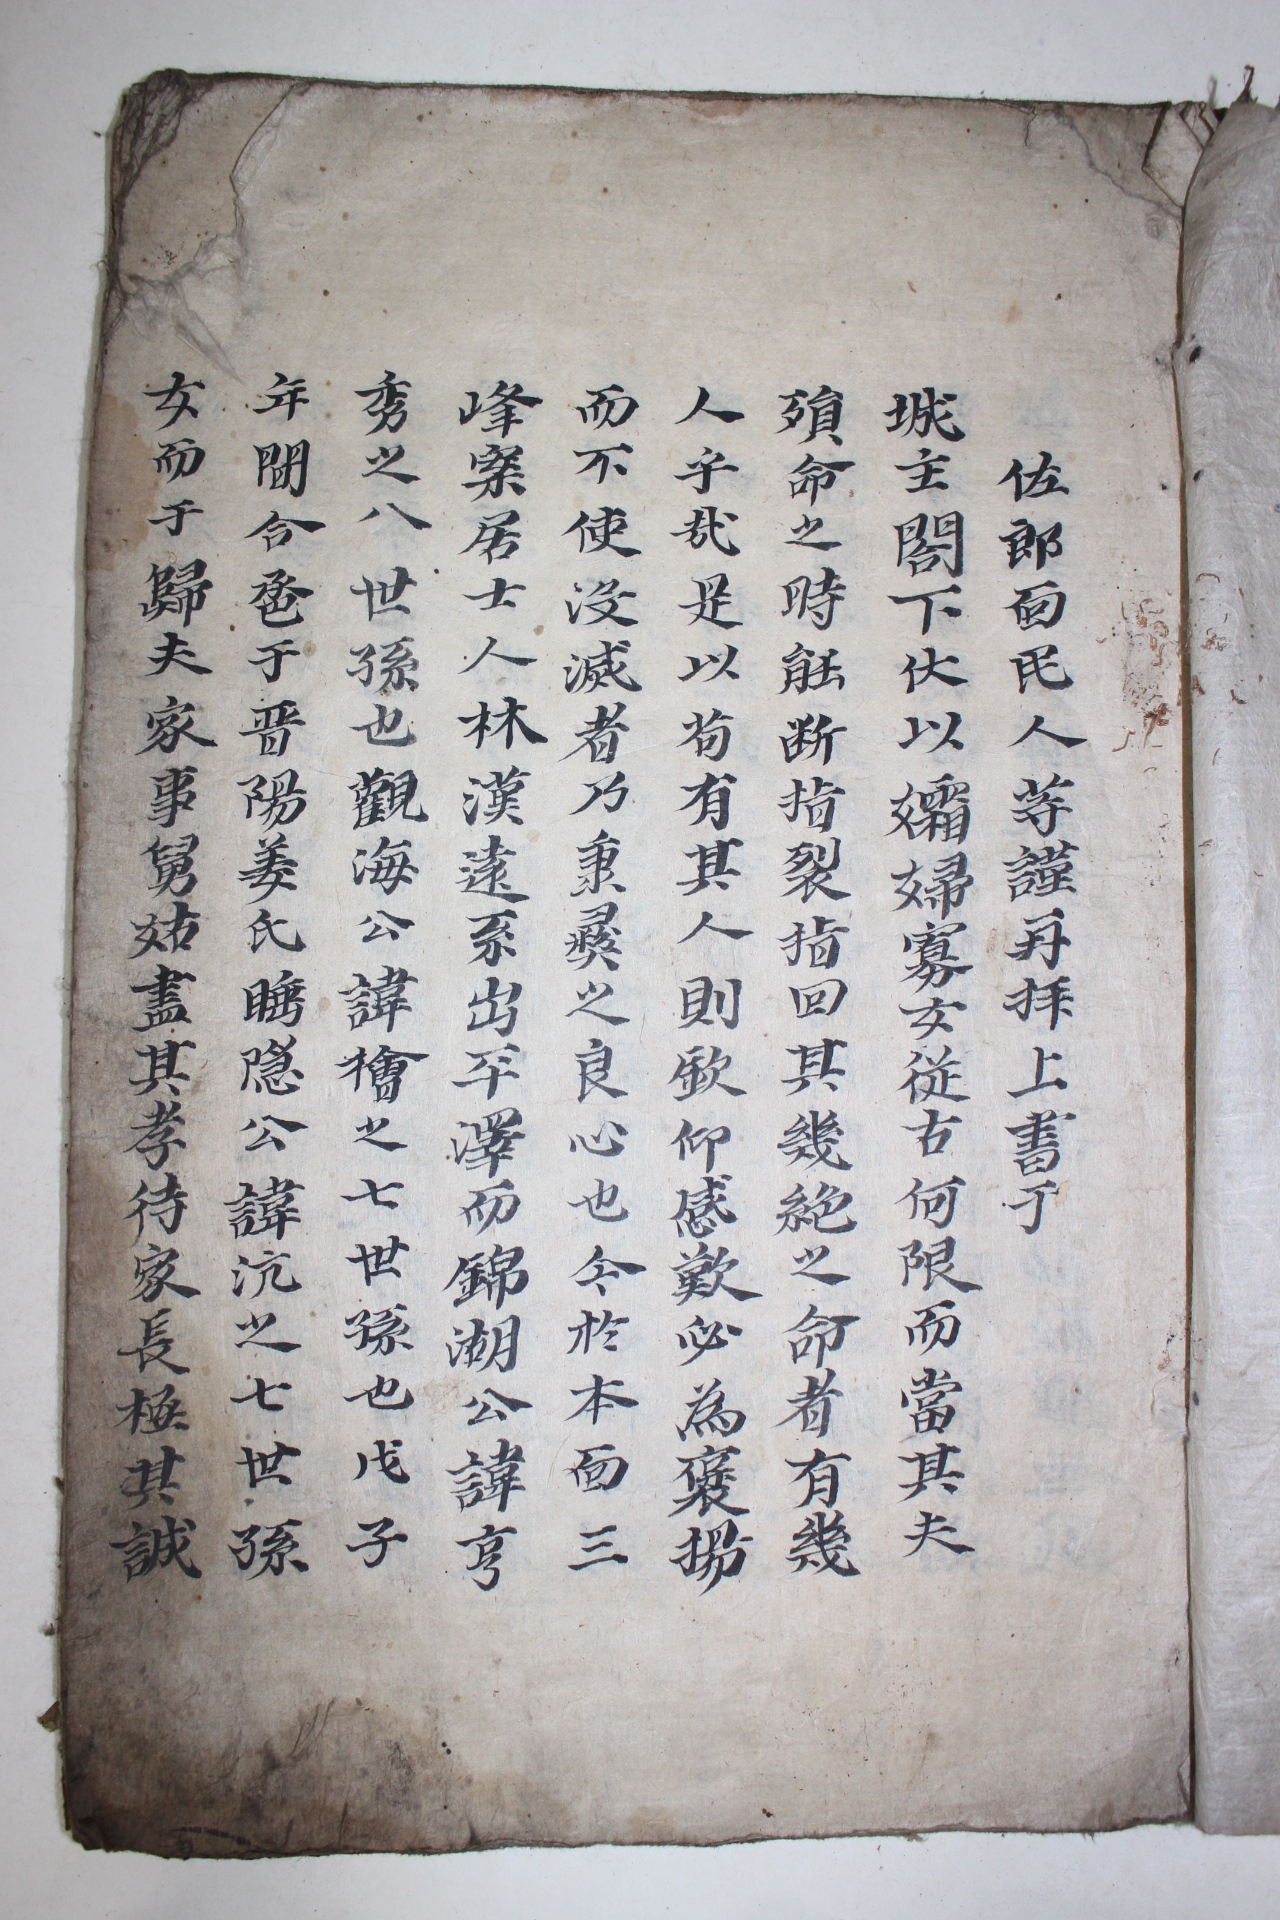 佐郎面民人等謹再拜上書于
城主閤下伏以孀婦寡女從古何限而當其夫
殞命之時能断指裂指回其幾絶之命者有幾
人乎哉是以苟有其人則欽仰感歎必為褒揚
而不使没滅者乃秉彛之良心也今於本面三
峰案居士人林漢遠系出平澤而錦湖公諱亨
秀之八世孫也觀海公諱檜之七世孫也戊子
年間合巹于晋陽姜氏睡隠公諱沆之七世孫
女而于歸夫家事舅姑盡其孝待家長極其誠